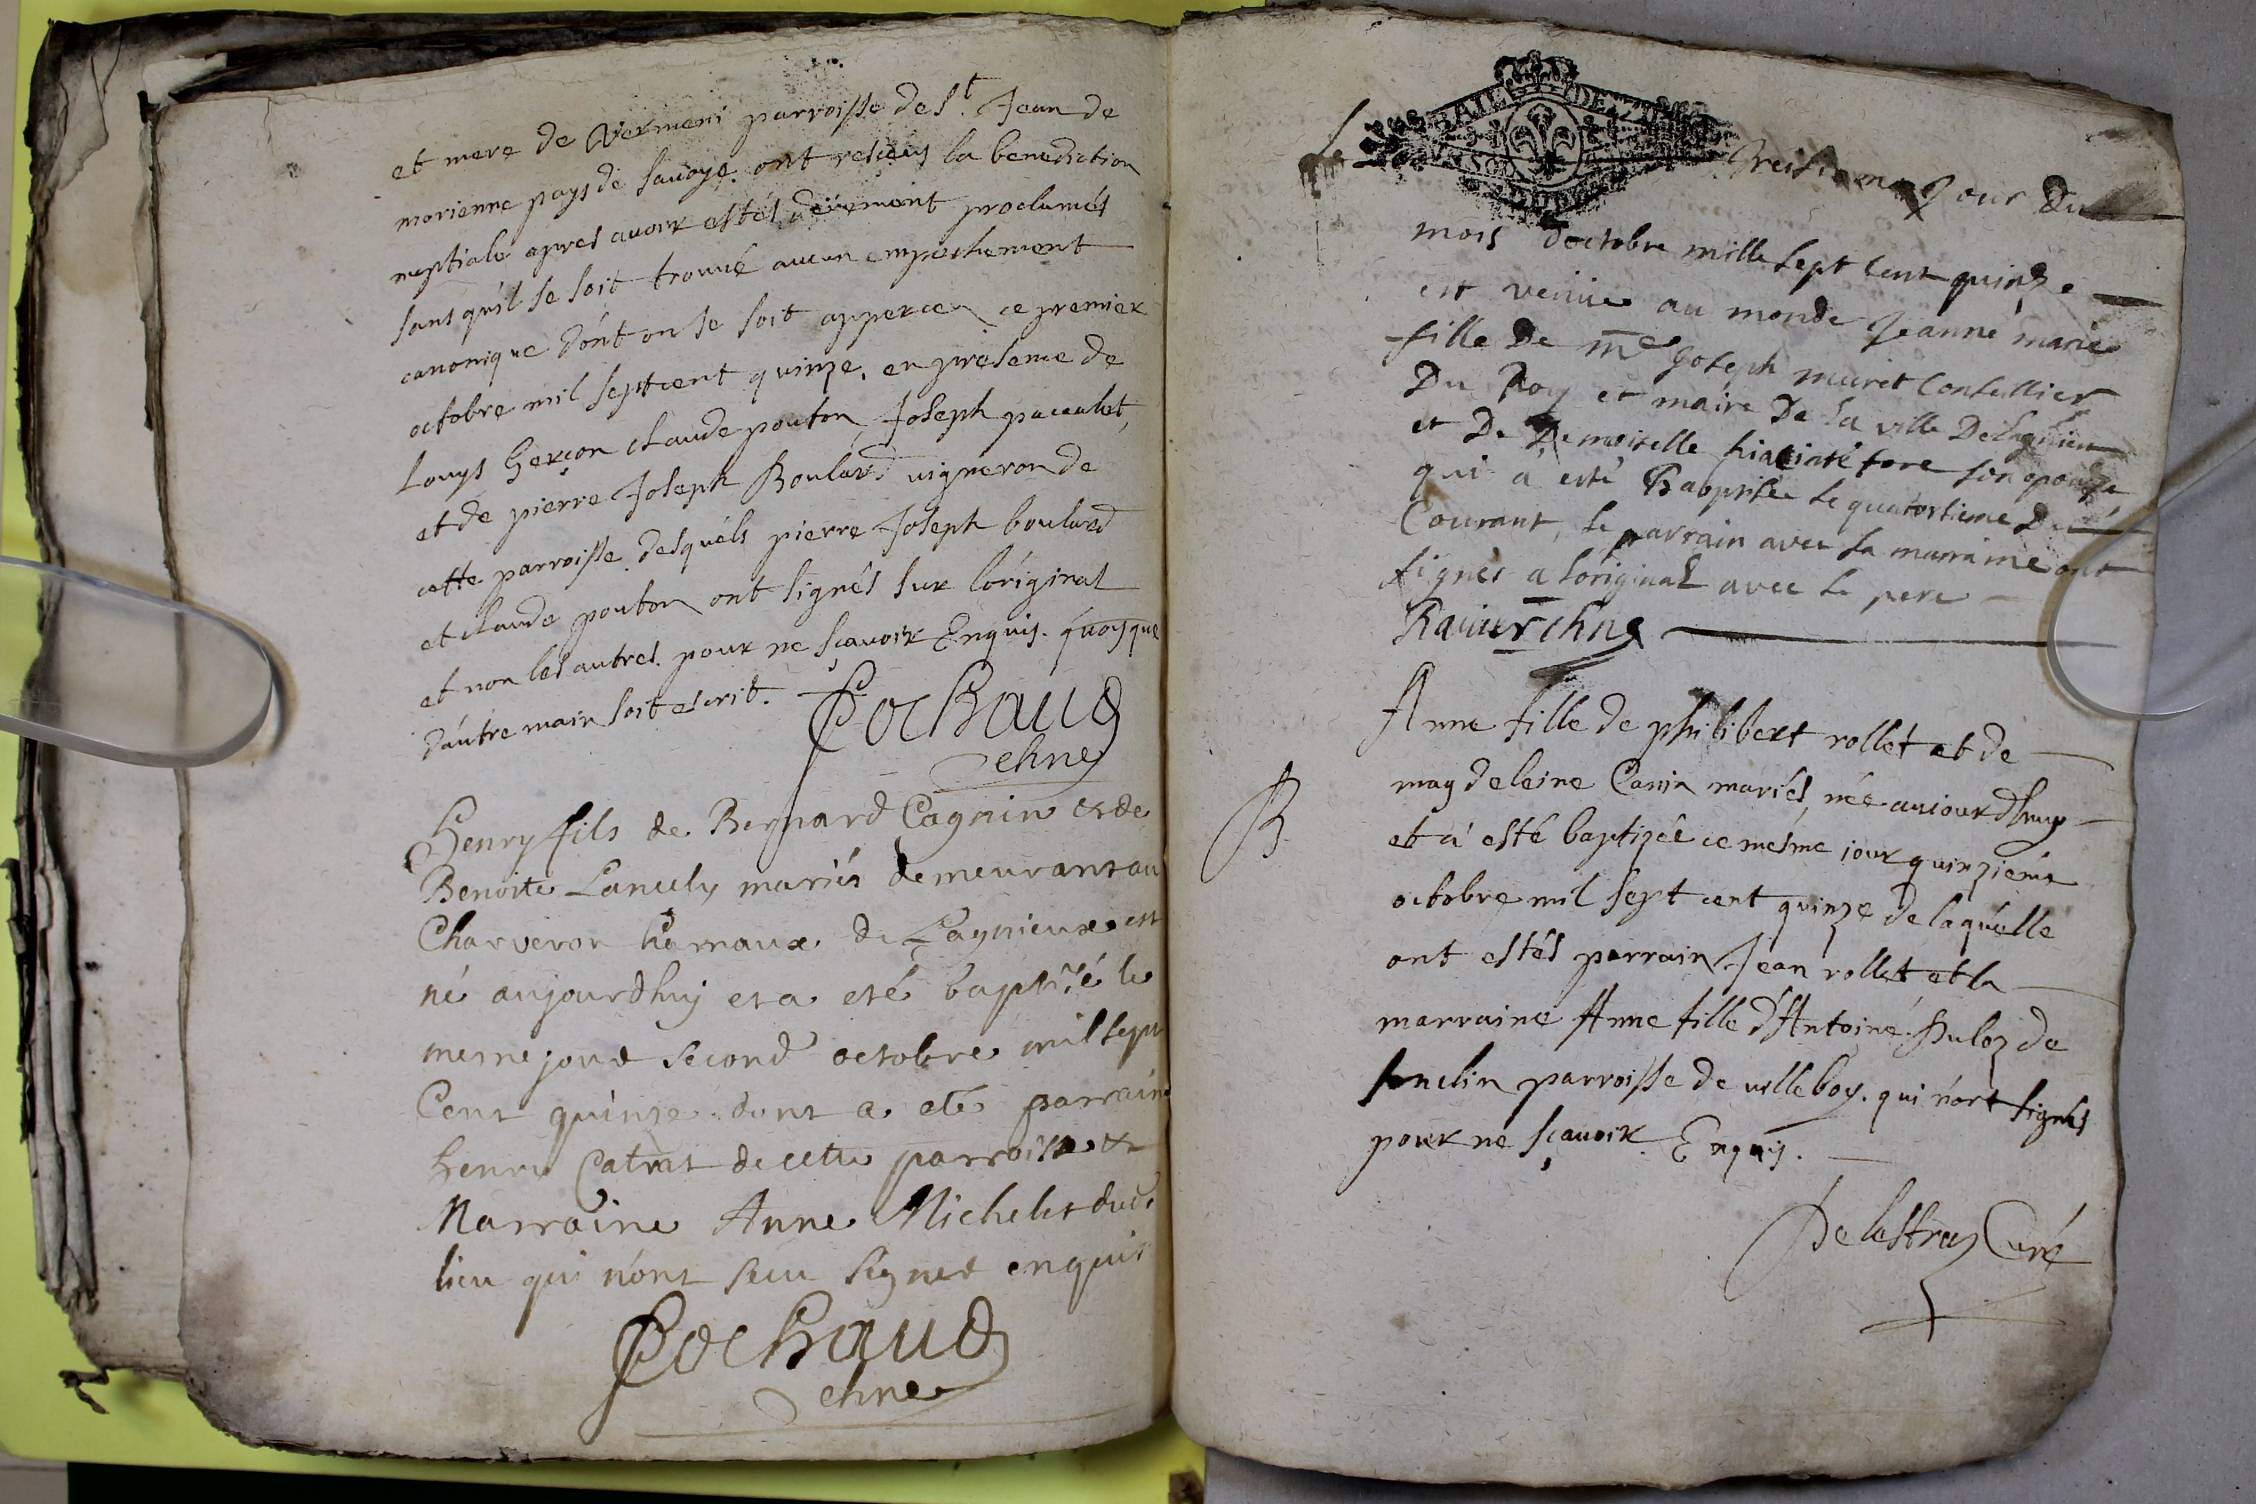 et mere de Vermeni parroisse de St. Jean de
morienne pays de Savoye. ont reseus la benediction
nuptiale apres avoir estés deüement proclamés
sans qu'il se soit trouvé aucun empeschement
canonique dont on se soit apperceu ce premier
octobre mil septcent quinze. en presence de
Louys Gerçon claude pouton, Joseph paccalet,
et de pierre Joseph Boulard vigneron de
cette parroisse. desquels pierre Joseph boulard
et claude pouton ont signés sur l'original
et non les autres. pour ne sçavoir Enquis. quoyque
d'autre main soit escrit.
Pochaud
chne
Henry fils de Bernard Cagnin et de
Benoite Lancely mariés demeurans au
Charveron hameaux de Lagnieux est
né aujourdhuj et a eté baptisé le
mesme jour second octobre mil sept
Cent quinze. dont a eté parrain
henry Catrat de cette parroisse et
Marraine Anne Michelet dud
lieu qui n'ont sceu signer enquis
Pochaud
chne
GEN DE
jour Du
mois d'octobre mille sept cent quinze
est venüe au monde Jeanne marie
fille De me Joseph muret Conseillier
Du Roy et maire De la ville De Lagnieu
et De Demoiselle hiacinte fore son epouse
qui a esté Baptisée le quatorsieme Du
Courant, le parrain avec la marraine ont
signés a l'original avec le pere
Ravier chne
B
Anne fille de philibert rollet et de
magdeleine Canin mariés, née aujourdhuy
et a esté baptizée ce mesme jour quinzieme
octobre mil sept cent quinze de laquelle
ont estés parrain Jean rollet et la
marraine Anne fille d'Antoine Buloz de
souclin parroisse de villeboy. qui n'ont signés
pour ne sçavoir. Enquis.
De lestraz Curé